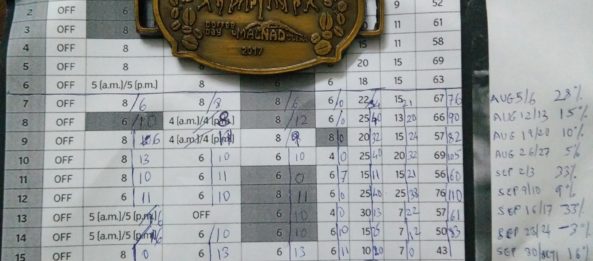 2 OFF 9 52
3 OFF 8 11 61
4 OFF 8 11 58
5 OFF 8 20 15 69
6 OFF 5 (a.m.)/5 (p.m.) 8 6 6 18 15 63
COFFEE DAY MALNAD
2017
7 OFF 8/6 8/8 8/6 6/0 22 15/21 67/76
8 OFF 6/6 4 (a.m.)/4 (p.m.) 8/12 6/0 25/40 13/20 66/90
9 OFF 8 4 (a.m.)/4 (p.m.) 8/9 8/0 20/32 15/24 57/82
10 OFF 8/13 6/10 6/10 4/0 25/40 20/32 69/105
11 OFF 8/10 6/11 6/0 6/7 15/11 15/21 56/60
12 OFF 6/11 6/10 8/11 6/0 25/40 25/38 76/110
13 OFF 5 (a.m.)/5 (p.m.) OFF 6/10 4/0 30/13 7/22 57/61
14 OFF 5 (a.m.)/5 (p.m.) 6/10 6/10 6/0 15/25 7/12 50
15 OFF 8/0 6/13 6/13 6/11 10/20 7/0 43
AUG 5/6 23%
AUG 12/13 15%
AUG 19/20 10%
AUG 26/27 5%
SEP 2/3 33%
SEP 9/10 9%
SEP 16/17 33%
SEP 23/24 -3%
SEP 30/OCT1 16%